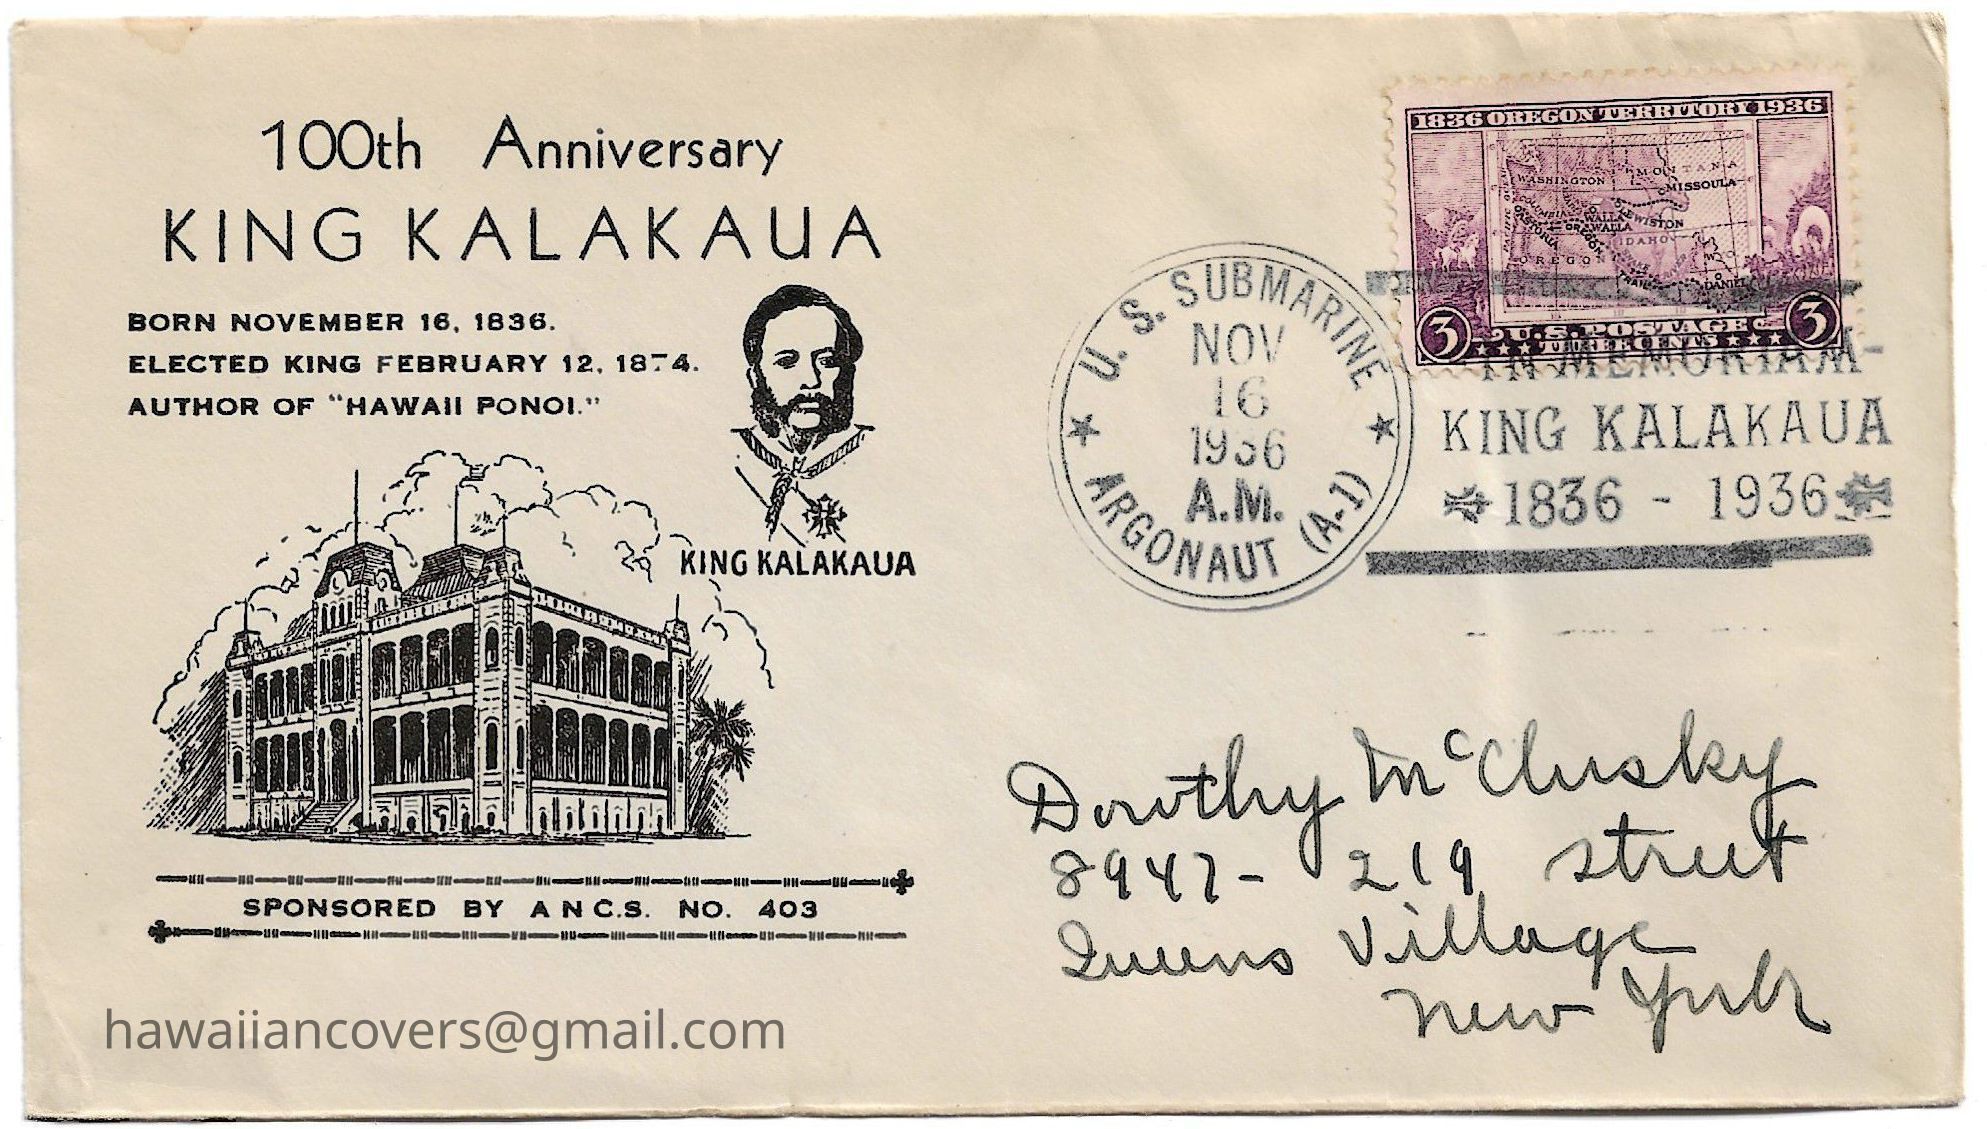 100th Anniversary
KING KALAKAUA
BORN NOVEMBER 16, 1836.
ELECTED KING FEBRUARY 12, 1874.
AUTHOR OF "HAWAII PONOI."
KING KALAKAUA
SPONSORED BY A N C.S. NO. 403
hawaiiancovers@gmail.com
U. S. SUBMARINE
NOV
16
1936
A.M.
ARGONAUT (A-1)
1836 OREGON TERRITORY 1936
WASHINGTON
MONTANA
MISSOULA
COLUMBIA
LEWISTON
WALLA
WALLA
ASTORIA
OREGON
IDAHO
OREGON
TRAIL
DANIEL
3 U.S. POSTAGE 3
THREE CENTS
IN MEMORIAM-
KING KALAKAUA
1836 - 1936
Dorothy McClusky
8947- 219 street
Queens Village
New York